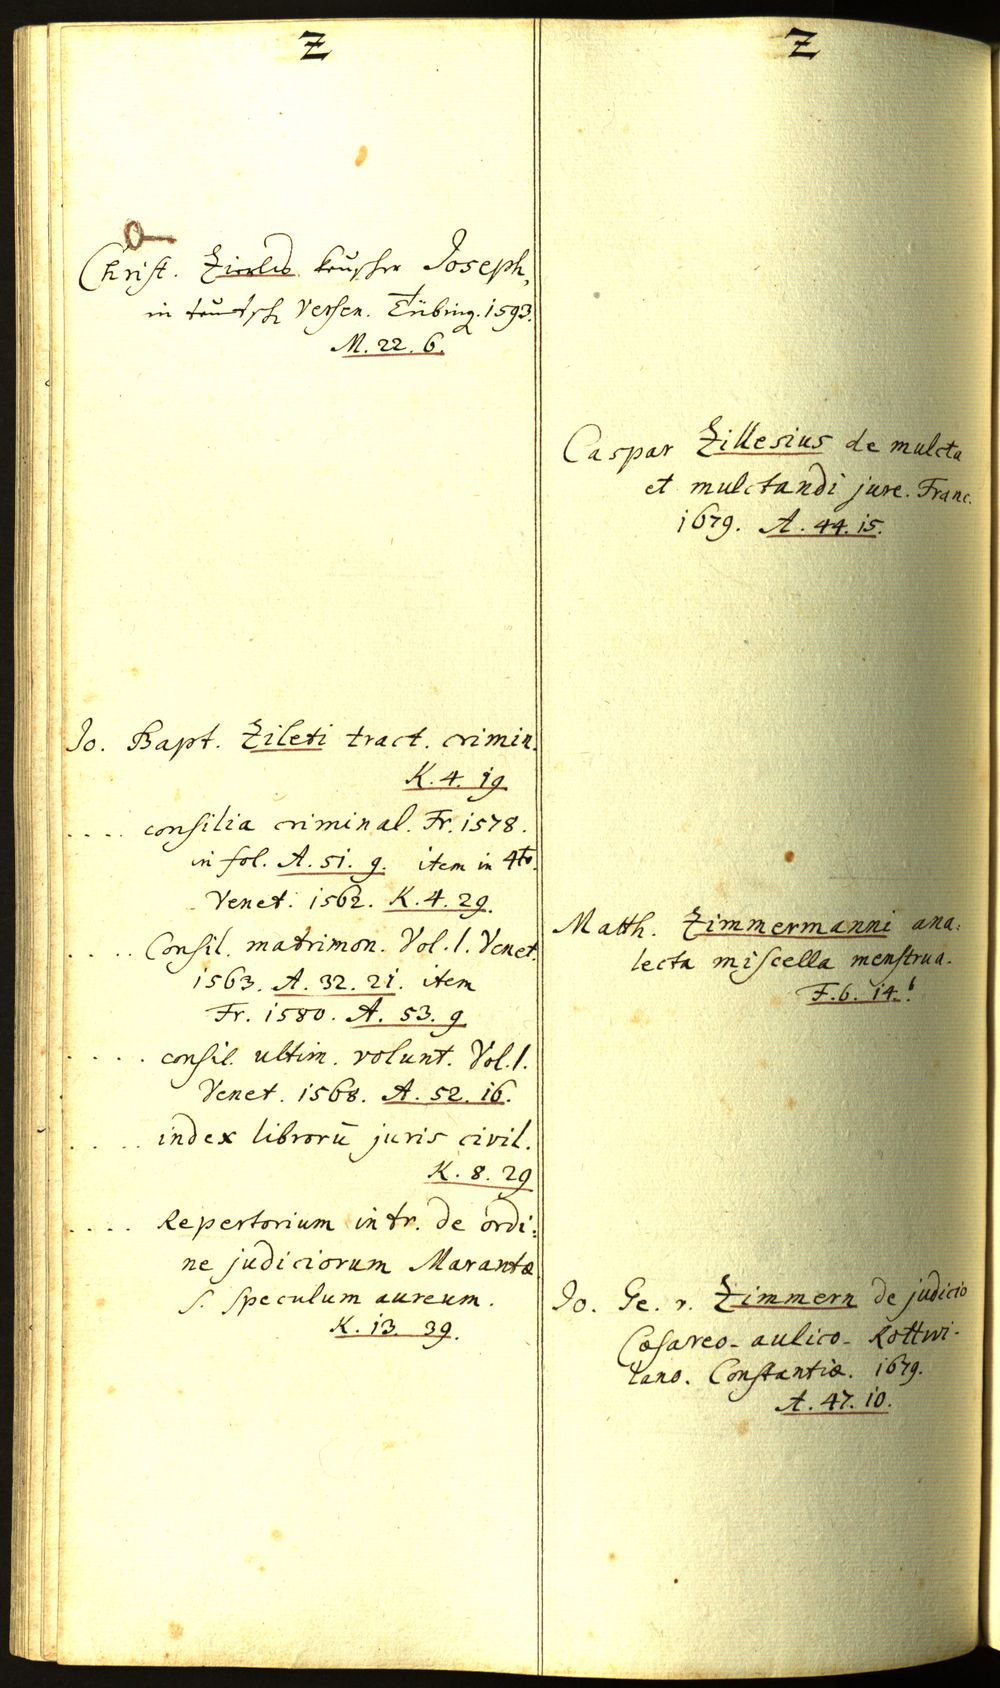 Z
Christ. Zierleẞ keuscher Joseph,
in teutsch Versen. Tübing. 1593.
M. 22. 6.
Jo. Bapt. Zileti tract. crimin.
K. 4. 19
.... consilia criminal. Fr. 1578.
in fol. A. 51. 9. item in 4to.
Venet. 1562. K. 4. 29.
.... Consil. matrimon. Vol. 1. Venet.
1563. A. 32. 21. item
Fr. 1580. A. 53. 9
.... consil. ultim. volunt. Vol. 1.
Venet. 1568. A. 52. 16.
.... index librorū juris civil.
K. 8. 29
.... Repertorium in tr. de ordi:
ne judiciorum Marantæ
s. speculum aureum.
K. 13. 39.
Z
Caspar Zillesius de mulcta
et mulctandi jure. Franc.
1679. A. 44. 15.
Matth. Zimmermanni ana:
lecta miscella menstrua.
F. 6. 14.
Jo. Ge. v. Zimmern de judicio
Cæsareo-aulico-Rottwi-
lano. Constantiæ. 1679.
A. 47. 10.